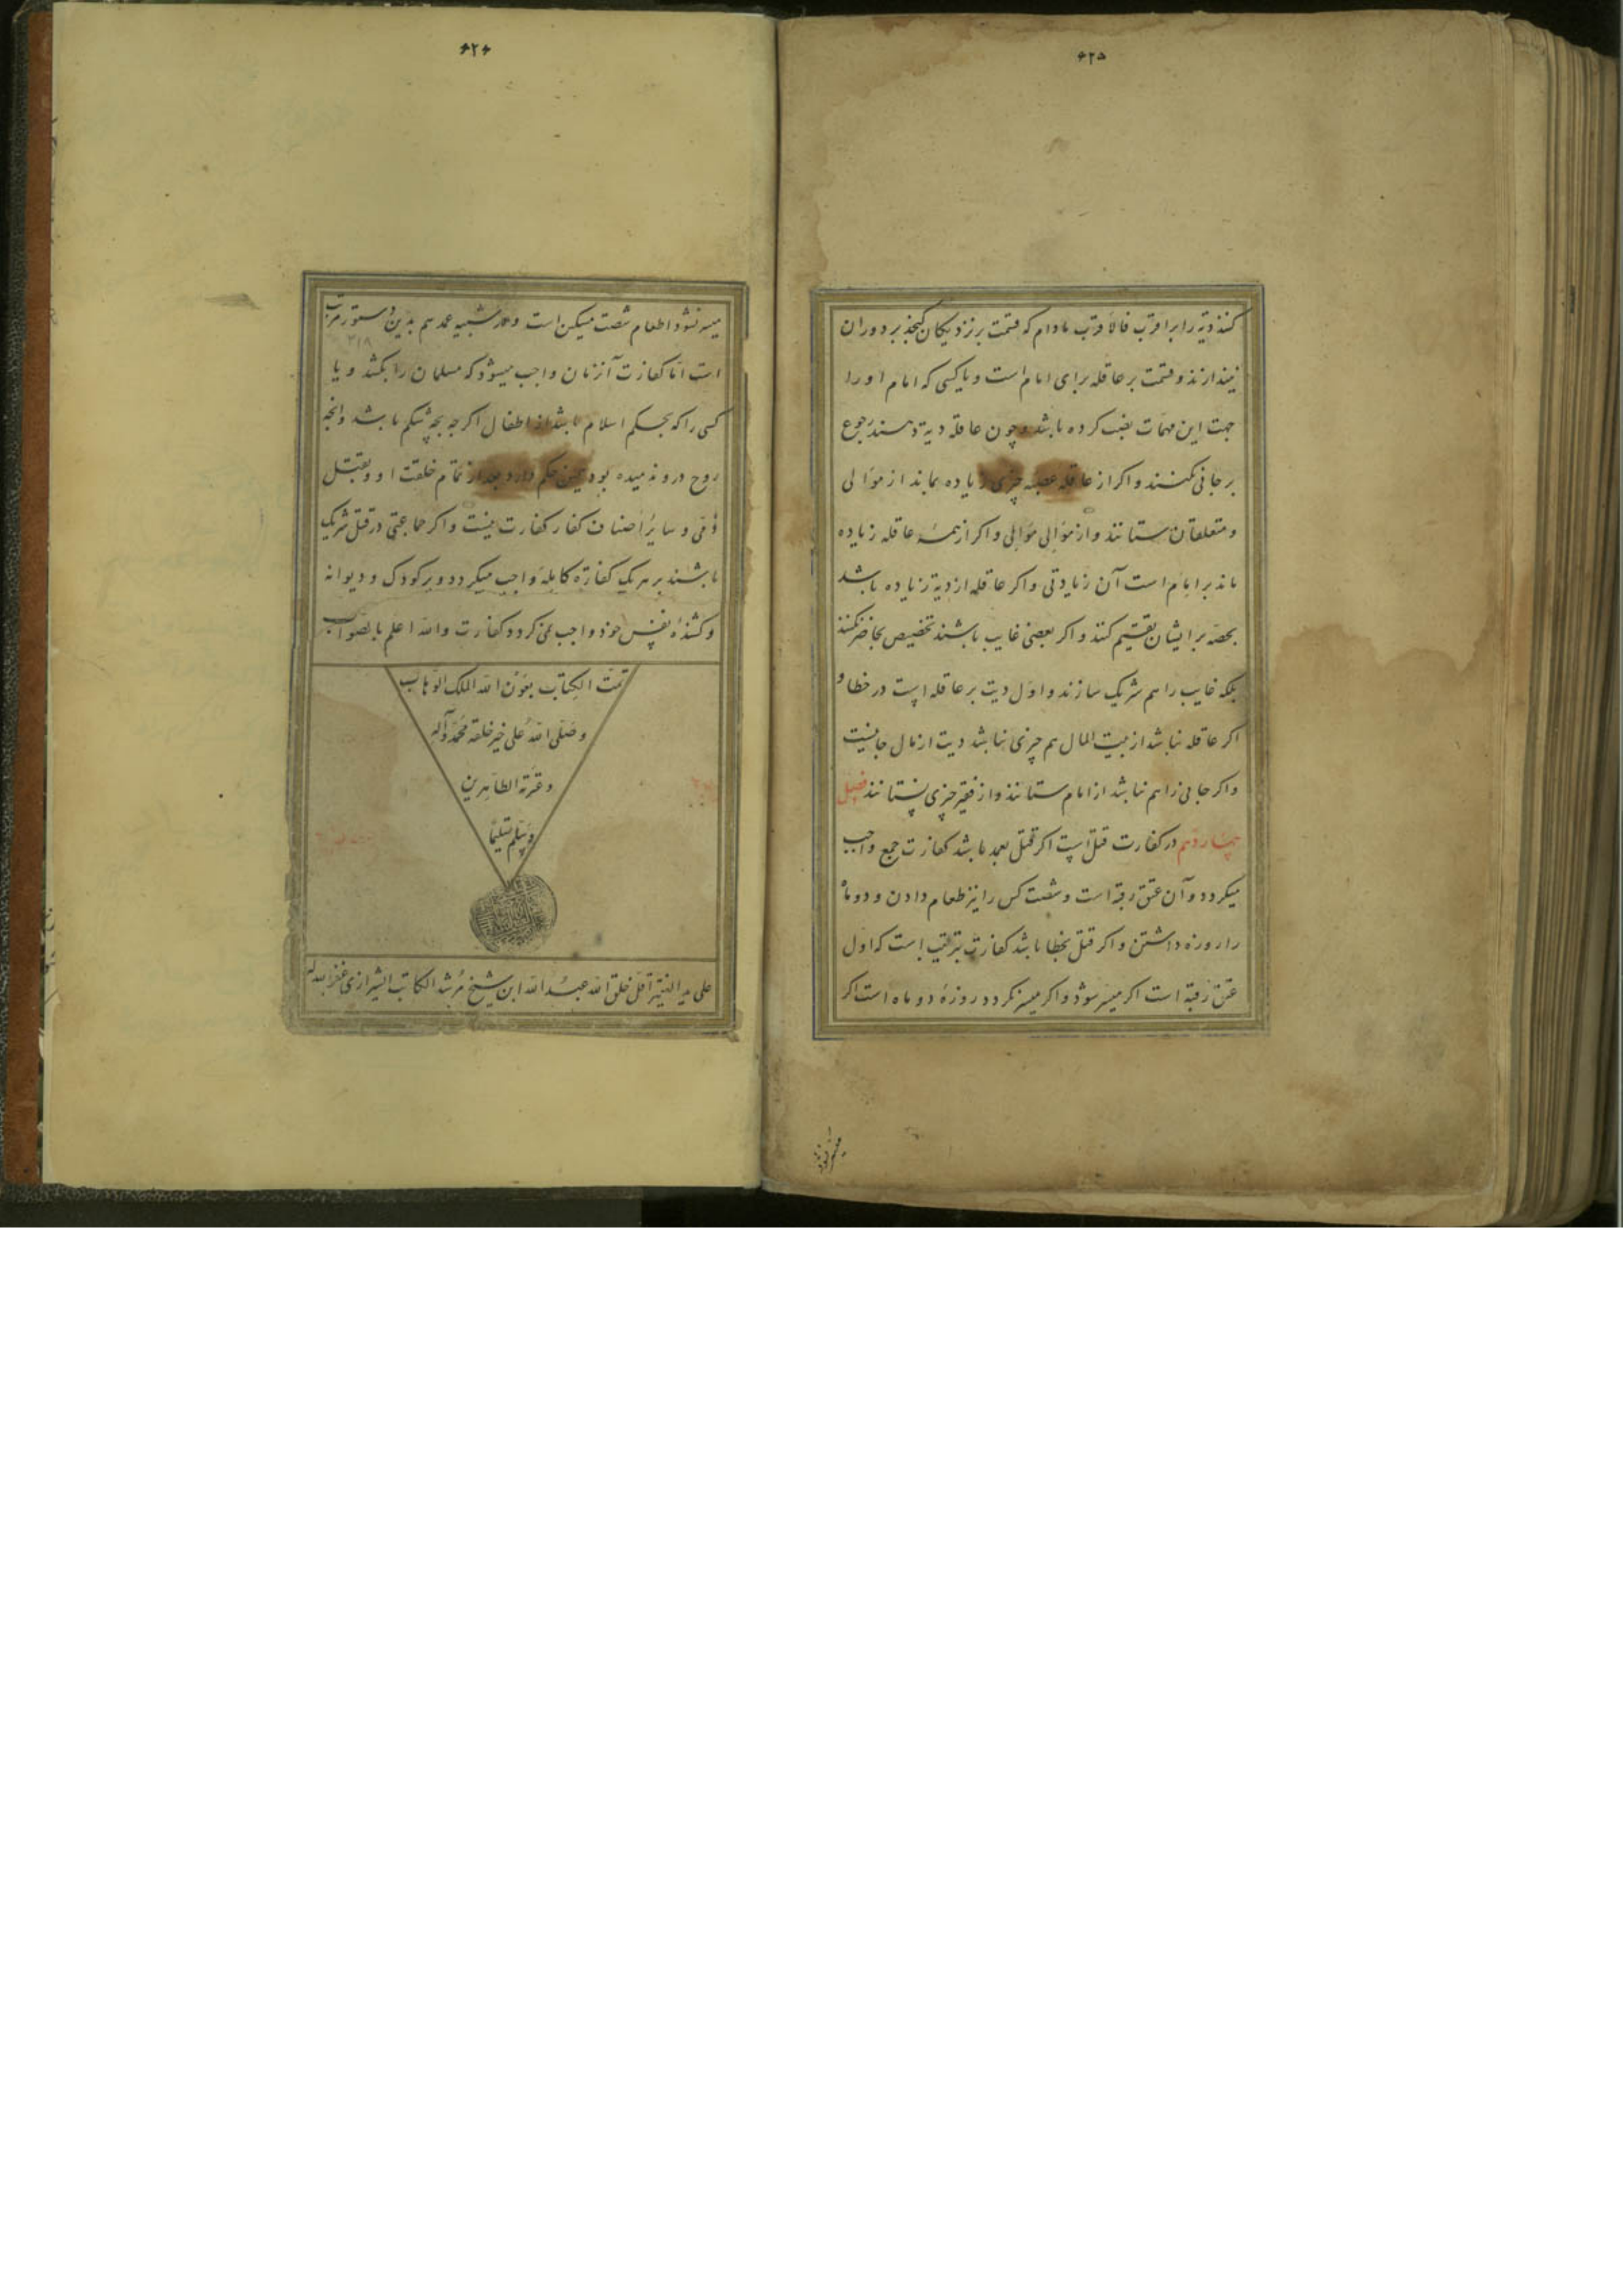 ۶۲۵
کنند دیه را بر اقرب فالاقرب مادام که قسمت بر نزدیکان گنجد بر دوران
نیندازند و قسمت بر عاقله برای امام است و یا کسی که امام او را
جهت این مهمات نصب کرده باشد و چون عاقله دیه دهند رجوع
بر جانی نکنند و اکر از عاقله عصبه چیزی زیاده بماند از موالی
و متعلقان ستانند و از موالی موالی و اکر از همه عاقله زیاده
ماند بر امام است آن زیادتی و اکر عاقله از دیه زیاده باشد
بحصه بر ایشان تقسیم کنند و اکر بعضی غایب باشند تخصیص بحاضر نکنند
بلکه غایب را هم شریک سازند و اول دیت بر عاقله است در خطا و
اکر عاقله نباشد از بیت المال هم چیزی نباشد دیت از مال جانیست
و اکر جانی را هم نباشد از امام ستانند و از فقیر چیزی نستانند فصل
چهاردهم در کفارت قتل است اکر قتل بعمد باشد کفارت جمع واجب
میکردد و آن عتق رقبه است و شصت کس را نیز طعام دادن و دو ماه
را روزه داشتن و اکر قتل بخطا باشد کفارت بترتیب است که اول
عتق رقبه است اکر میسر شود و اکر میسر نکردد روزه دو ماه است اکر
میسر نشود
۶۲۶
میسر نشود اطعام شصت مسکین است و در شبیه عمد هم بدین دستور مرتب
۳۱۸
است اما کفارت آنزمان واجب میشود که مسلمان را بکشد و یا
کسی را که بحکم اسلام باشد از اطفال اکرچه بچه شکم باشد و آنچه
روح درو ندمیده بود همین حکم دارد بعد از تمام خلقت او و بقتل
ذمی و سایر اصناف کفار کفارت نیست و اکر جماعتی در قتل شریک
باشند بر هر یک کفاره کامله واجب میکردد و بر کودک و دیوانه
و کشنده نفس خود واجب نمیکردد کفارت والله اعلم بالصواب
تمت الکتاب بعون الله الملک الوهاب
و صلی الله علی خیر خلقه محمد و آله
و عترته الطاهرین
و سلم تسلیما
علی ید الفقیر اقل خلق الله عبد الله ابن شیخ مرشد الکاتب الشیرازی غفر الله له